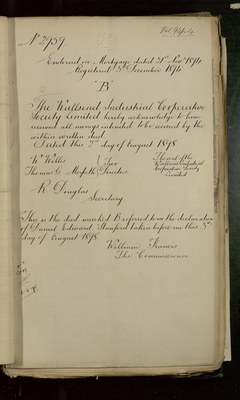 No 2959
Endorsed on Mortgage dated 21st Nov 1874
Registered 3rd December 1874
"B"
The Wallsend Industrial Cooperative
Society Limited hereby acknowledge to have
received all moneys intended to be secured by the
within written deed.
Dated this 2nd day of August 1878
Wm Wells } Two
Thomas G Directors
The seal of the
Wallsend Industrial
Cooperative Society
Limited
R Douglas
Secretary
This is the deed marked B referred to in the declaration
of Daniel Edward Stanford taken before me this 3rd
day of August 1878
William Francis
The Commissioner